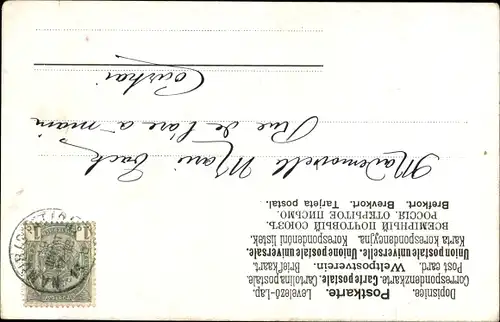 Dopisnice. Postkarte. Levelező-Lap.
Correspondenzkarte. Carte postale. Cartolina postale.
Post card. Weltpostverein. Briefkaart.
Union postale universelle. Unione postale universale.
Karta korespondencyjna. Korespondenční lístek.
ВСЕМІРНЫЙ ПОЧТОВЫЙ СОЮЗЪ.
РОССІЯ. ОТКРЫТОЕ ПИСЬМО.
Brefkort. Brevkort. Tarjeta postal.
Mademoiselle Marie
Rue de
Courtrai
1 1